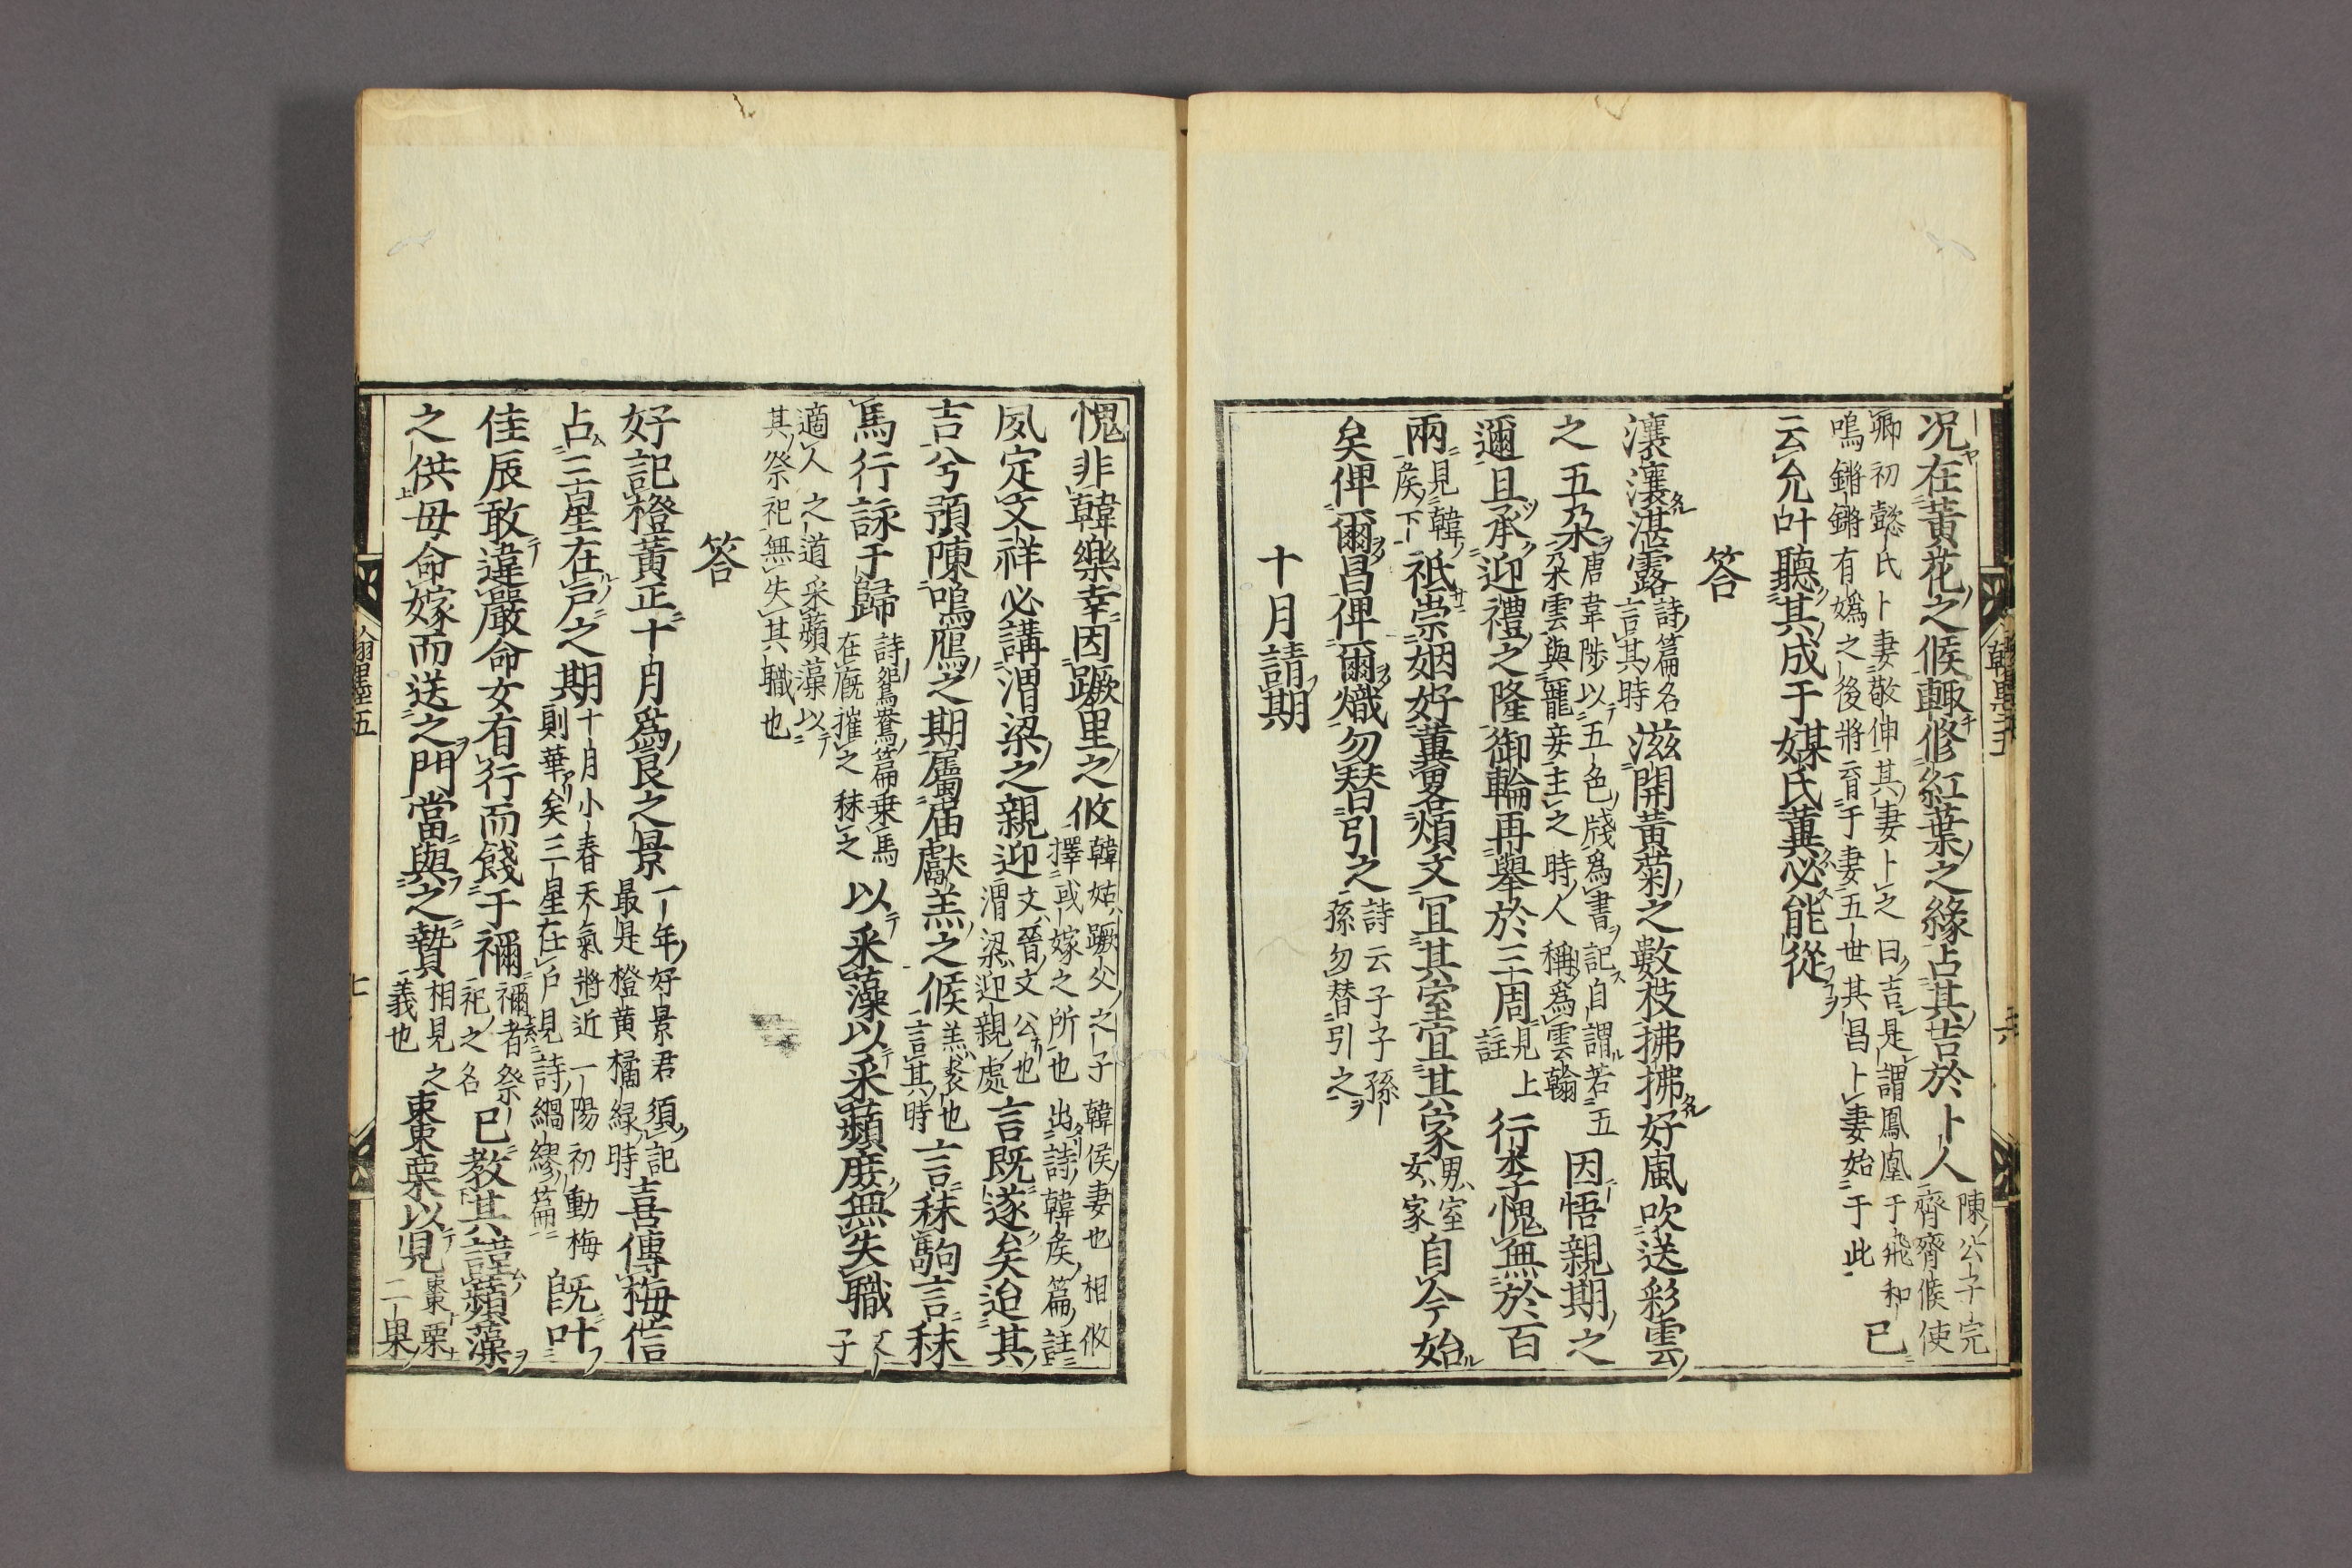 况在黃花之候輙修紅葉之緣占其吉於卜人陳公子完齊齊候使
卿初懿氏卜妻敬伸其妻卜之曰吉是謂鳳凰于飛和
鳴鏘鏘有嬀之後將育于妻五世其昌卜妻始于此 已
云允叶聽其成于媒氏兾必能從
答
瀼瀼湛露詩篇名言其時滋開黃菊之數枝拂拂好風吹送彩雲
之五朶唐韋陟以五色牋爲書記自謂若五朶雲與寵妾主之時人稱爲雲翰因悟親期之
邇且承迎禮之隆御輪再舉於三周見上註行李愧無於百
兩見韓侯下祗崇姻好兾畧煩文宜其室宜其家男室女家自今始
矣俾爾昌俾爾熾勿替引之詩云子子孫孫勿替引之
十月請期
愧非韓樂幸因蹶里之攸韓姞蹶父之子韓侯妻也相攸擇或嫁之所也出詩韓侯篇註
夙定文祥必講渭梁之親迎文晉文公也渭梁迎親處言既遂矣迨其
吉兮預陳鳴鴈之期屬届獻羔之候羔裘也言其時言秣駒言秣
馬行詠于歸詩鴛鴦篇乗馬在廐摧之秣之以采藻以采蘋庶無失職女子
適人之道采蘋藻以
其祭祀無失其職也
答
好記橙黃正十月爲良之景一年好景君須記最是橙黄橘緑時喜傳梅信
占三星在戸之期十月小春天氣將近一陽初動梅則華矣三星在戸見詩綢繆篇既叶
佳辰敢違嚴命女有行而餞于禰禰者祭祀之名已教其謹蘋藻
之供母命嫁而送之門當與之贄相見之義也棗栗以見棗栗二果
翰墨五
七